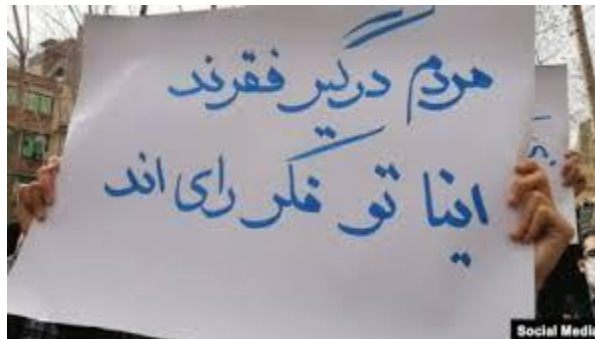 مردم درگیر فقرند
اینا تو فکر رای اند
Social Media